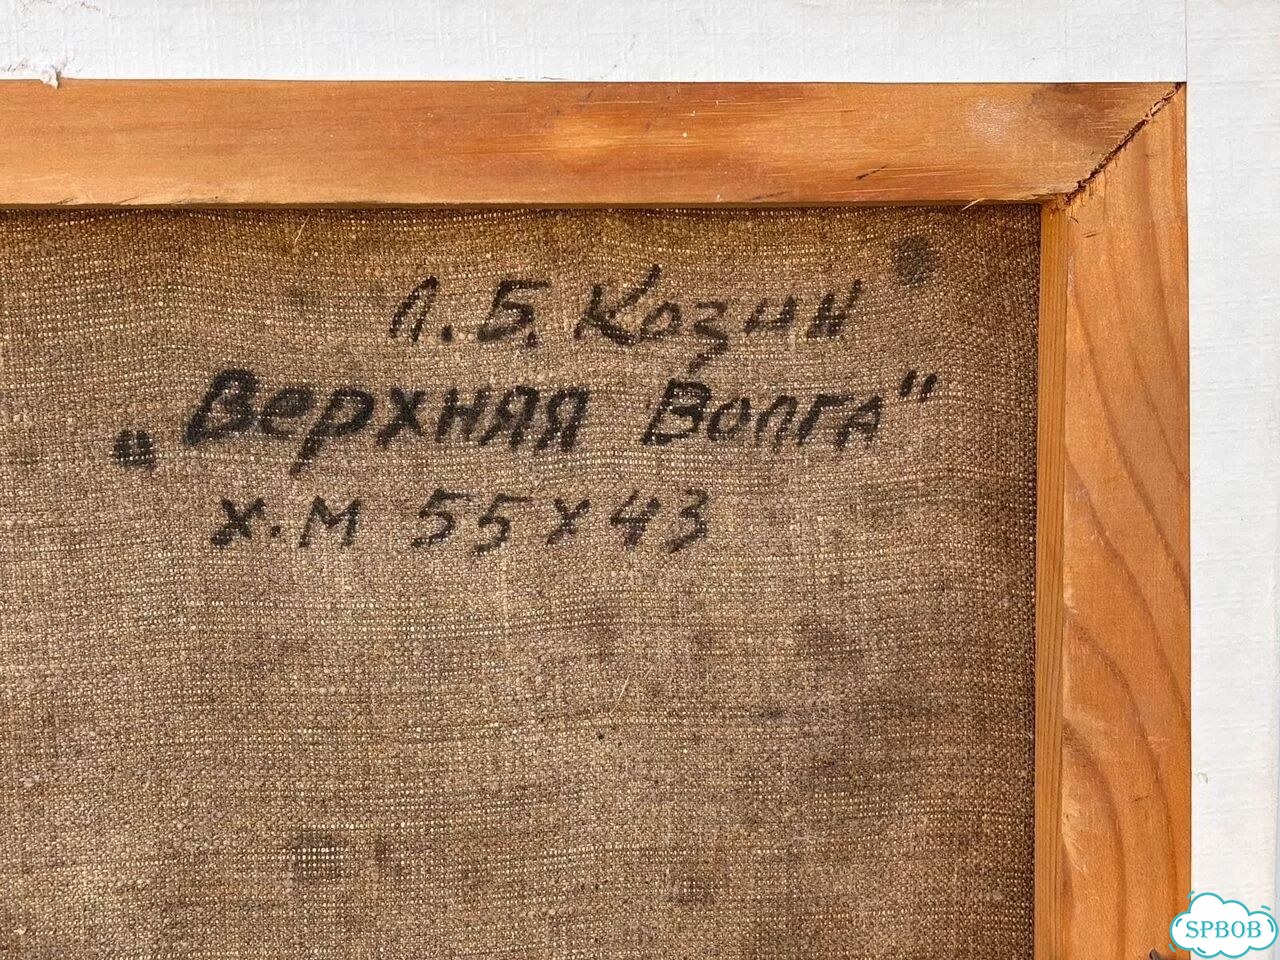 Л. Б. Козин
„Верхняя Волга"
х.м 55х43
SPBOB